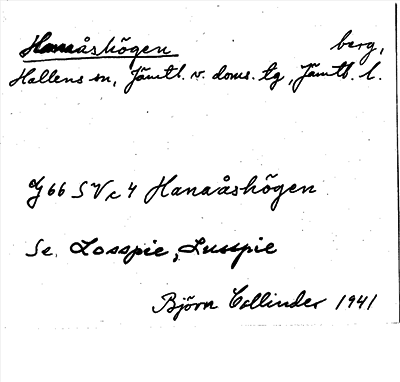 Hanaåshögen berg,
Hallens sn, Jämtl. v. doms. tg, Jämtl. l.
G66 SVc4 Hanaåshögen
Se. Losspie, Lusspie
Björn Collinder 1941